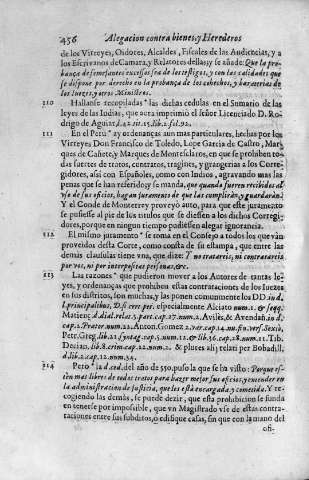 456 Alegacion contra bienes, y Herederos
de los Virreyes, Oidores, Alcaldes, Fiscales de las Audiencias, y a
los Escrivanos de Camara, y Relatores dellas, y se añade: Que la pro-
bança de semejantes excessos sea de los testigos, y con las calidades que
se dispone por derecho en la probança de los cohechos, y baraterias de
los Iuezes, y otros Ministros.
110 Hallanse recopiladas las dichas cedulas en el Sumario de las
leyes de las Indias, que aora imprimió el señor Licenciado D. Ro-
drigo de Aguiar, L.42. tit.15. lib.2. fol.90.
111 En el Perù ay ordenanças aun mas particulares, hechas por los
Virreyes Don Francisco de Toledo, Lope Garcia de Castro, Mar-
ques de Cañete, y Marques de Montesclaros, en que se prohiben to-
das suertes de tratos, contratos, tragines, y grangerias a los Corre-
gidores, assi con Españoles, como con Indios, agravando mas las
penas que se han referido; y se manda, que quando fueren recibidos al
uso de sus oficios, hagan juramento de que las complirán, y guardarán:
Y el Conde de Monterrey proveyó auto, para que este juramento
se pusiesse al pie de los titulos que se diessen a los dichos Corregi-
dores, porque en ningun tiempo pudiessen alegar ignorancia.
112 El mismo juramento se toma en el Consejo a todos los que vàn
proveidos desta Corte, como consta de su estampa, que entre las
demas clausulas tiene vna, que dize: Y no tratareis, ni contratareis
por vos, ni por interpositas personas, &c.
113 Las razones que pudieron mover a los Autores de tantas le-
yes, y ordenanças que prohiben estas contrataciones de los Iuezes
en sus distritos, son muchas, y las ponen comunmente los DD in d.
l. principalibus, D. si cert. pet. especialmente Alciato num.1. & seqq.
Matienç. d. dial. relat. 3. part. cap.27. num.2. Aviles, & Avendañ. in d.
cap.2. Prætor. num.21. Anton. Gomez 2. var. cap.14. nu. fin. vers. Sexto,
Petr. Greg. lib.21. syntag. cap.5. num.12. & lib.36. cap.28. num.11. Tib.
Decian. lib.8. crim. cap.12. num.2. & plures alij relati per Bobadill.
d. lib.2. cap.12. num.34.
114 Pero la d. ced. del año de 550. puso la que se ha visto: Porque es-
tèn mas libres de todos tratos para hazer mejor sus oficios, y entender en
la administracion de justicia, que les està encargada, y cometida. Y re-
cogiendo las demàs, se puede dezir, que esta prohibicion se funda
en tenerse por impossible, que vn Magistrado vse de estas contra-
taciones entre sus subditos, ò edifique casas, sin que con la mano del
ofi-